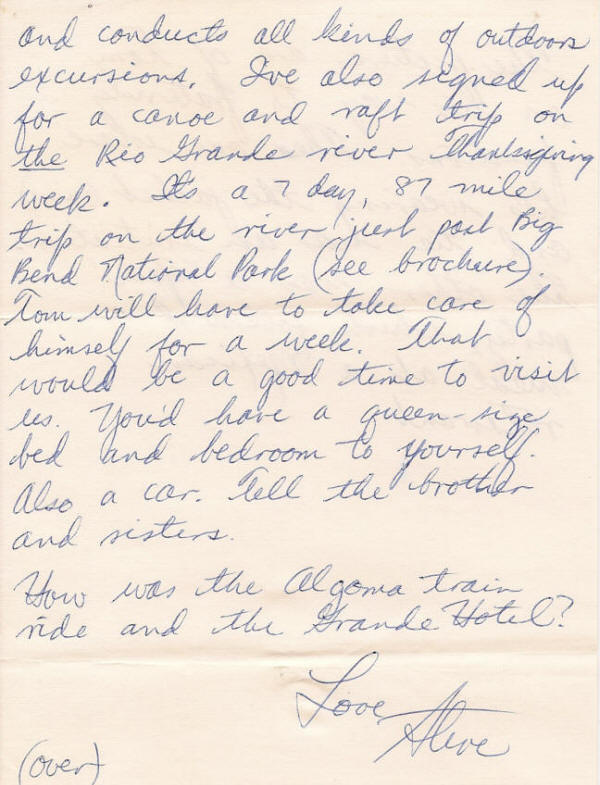 and conducts all kinds of outdoors
excursions. I've also signed up
for a canoe and raft trip on
the Rio Grande river Thanksgiving
week. It's a 7 day, 87 mile
trip on the river just past Big
Bend National Park (see brochure).
Tom will have to take care of
himself for a week. That
would be a good time to visit
us. You'd have a queen-size
bed and bedroom to yourself.
Also a car. Tell the brother
and sisters.
How was the Algoma train
ride and the Grande Hotel?
Love,
Steve
(over)